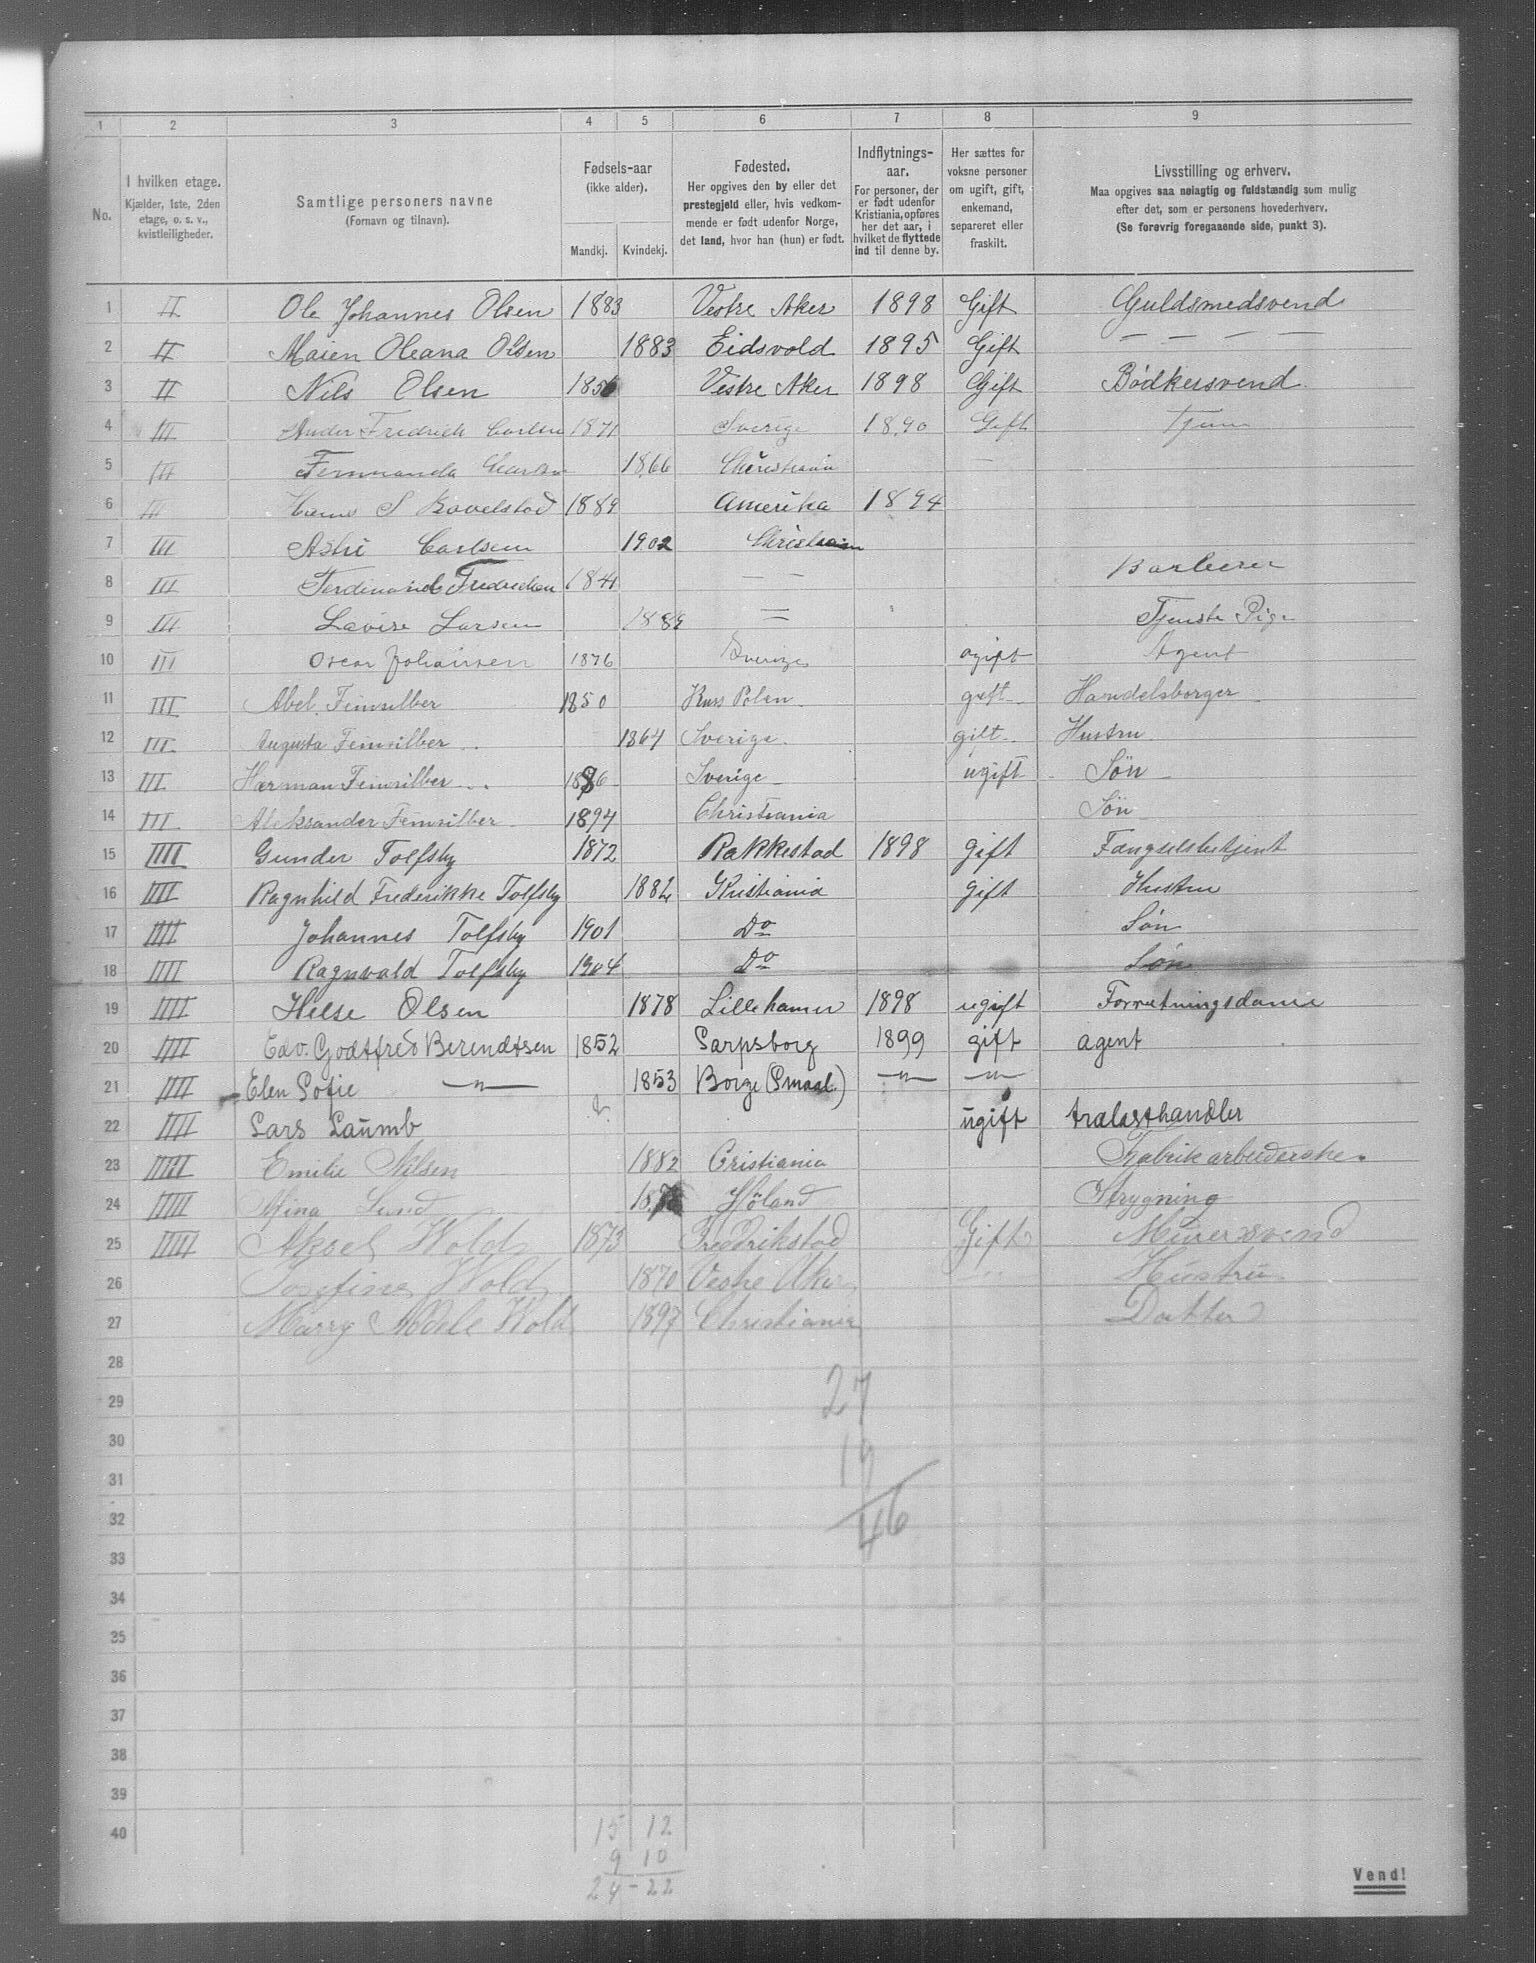 1 2 3 4 5 6 7 8 9
No.
I hvilken etage.
Kjælder, 1ste, 2den
etage, o. s. v.,
kvistleiligheder.
Samtlige personers navne
(Fornavn og tilnavn).
Fødsels-aar
(ikke alder).
Mandkj. Kvindekj.
Fødested.
Her opgives den by eller det
prestegjeld eller, hvis vedkom-
mende er født udenfor Norge,
det land, hvor han (hun) er født.
Indflytnings-
aar.
For personer, der
er født udenfor
Kristiania, opføres
her det aar, i
hvilket de flyttede
ind til denne by.
Her sættes for
voksne personer
om ugift, gift,
enkemand,
separeret eller
fraskilt.
Livsstilling og erhverv.
Maa opgives saa nøiagtig og fuldstændig som mulig
efter det, som er personens hovederhverv.
(Se forøvrig foregaaende side, punkt 3).
1 II Ole Johannes Olsen 1883 Vestre Aker 1898 Gift Guldsmedsvend
2 II Maien Oleana Olsen 1883 Eidsvold 1895 Gift — — — —
3 II Nils Olsen 1856 Vestre Aker 1898 Gift Bødkersvend
4 III Fredrich 1871 Sverige 1890 Gift
5 III 1866 Christiania —
6 III S 1889 Amerika 1894
7 III Astri Carlsen 1902 Christiania
8 III Fredricksen — — Barberer
9 III Lovise Larsen = Tjeneste Pige
10 III Oscar Johansen 1876 Sverige ugift Agent
11 III Abel Feinsilber 1850 Russ Polen gift Handelsborger
12 III Augusta Feinsilber 1864 Sverige gift Hustru
13 III Herman Feinsilber 1886 Sverige ugift Søn
14 III Aleksander Feinsilber 1894 Christiania Søn
15 IIII Gunder Tolfsby 1872 Rakkestad 1898 gift Fængselsbetjent
16 IIII Ragnhild Frederikke Tolfsby 1882 Kristiania gift Hustru
17 IIII Johannes Tolfsby 1901 Do Søn
18 IIII Ragnvald Tolfsby 1904 Do Søn
19 IIII Helse Olsen 1878 Lillehamer 1898 ugift Forretningsdame
20 IIII Edv. Godtfred Berendtsen 1852 Sarpsborg 1899 gift agent
21 IIII Elen Sofie —"— 1853 Borge (Smaal) —"— —"—
22 IIII Lars Laumb ugift trælasthandler
23 IIIII Emilie Nilsen 1882 Cristiania Fabrikarbeiderske.
24 IIIII Mina Lund Høland Strygning
25 IIIII Aksel Wold 1873 Fredrikstad Gift Murersvend
26 Josefine Wold 1870 Vestre Aker Hustru
27 Marry Adele Wold 1897 Christiania Datter
28
29 27
30
31 19
32 46
33
34
35
36
37
38
39
40 15 12
9 10
24 - 22
Vend!